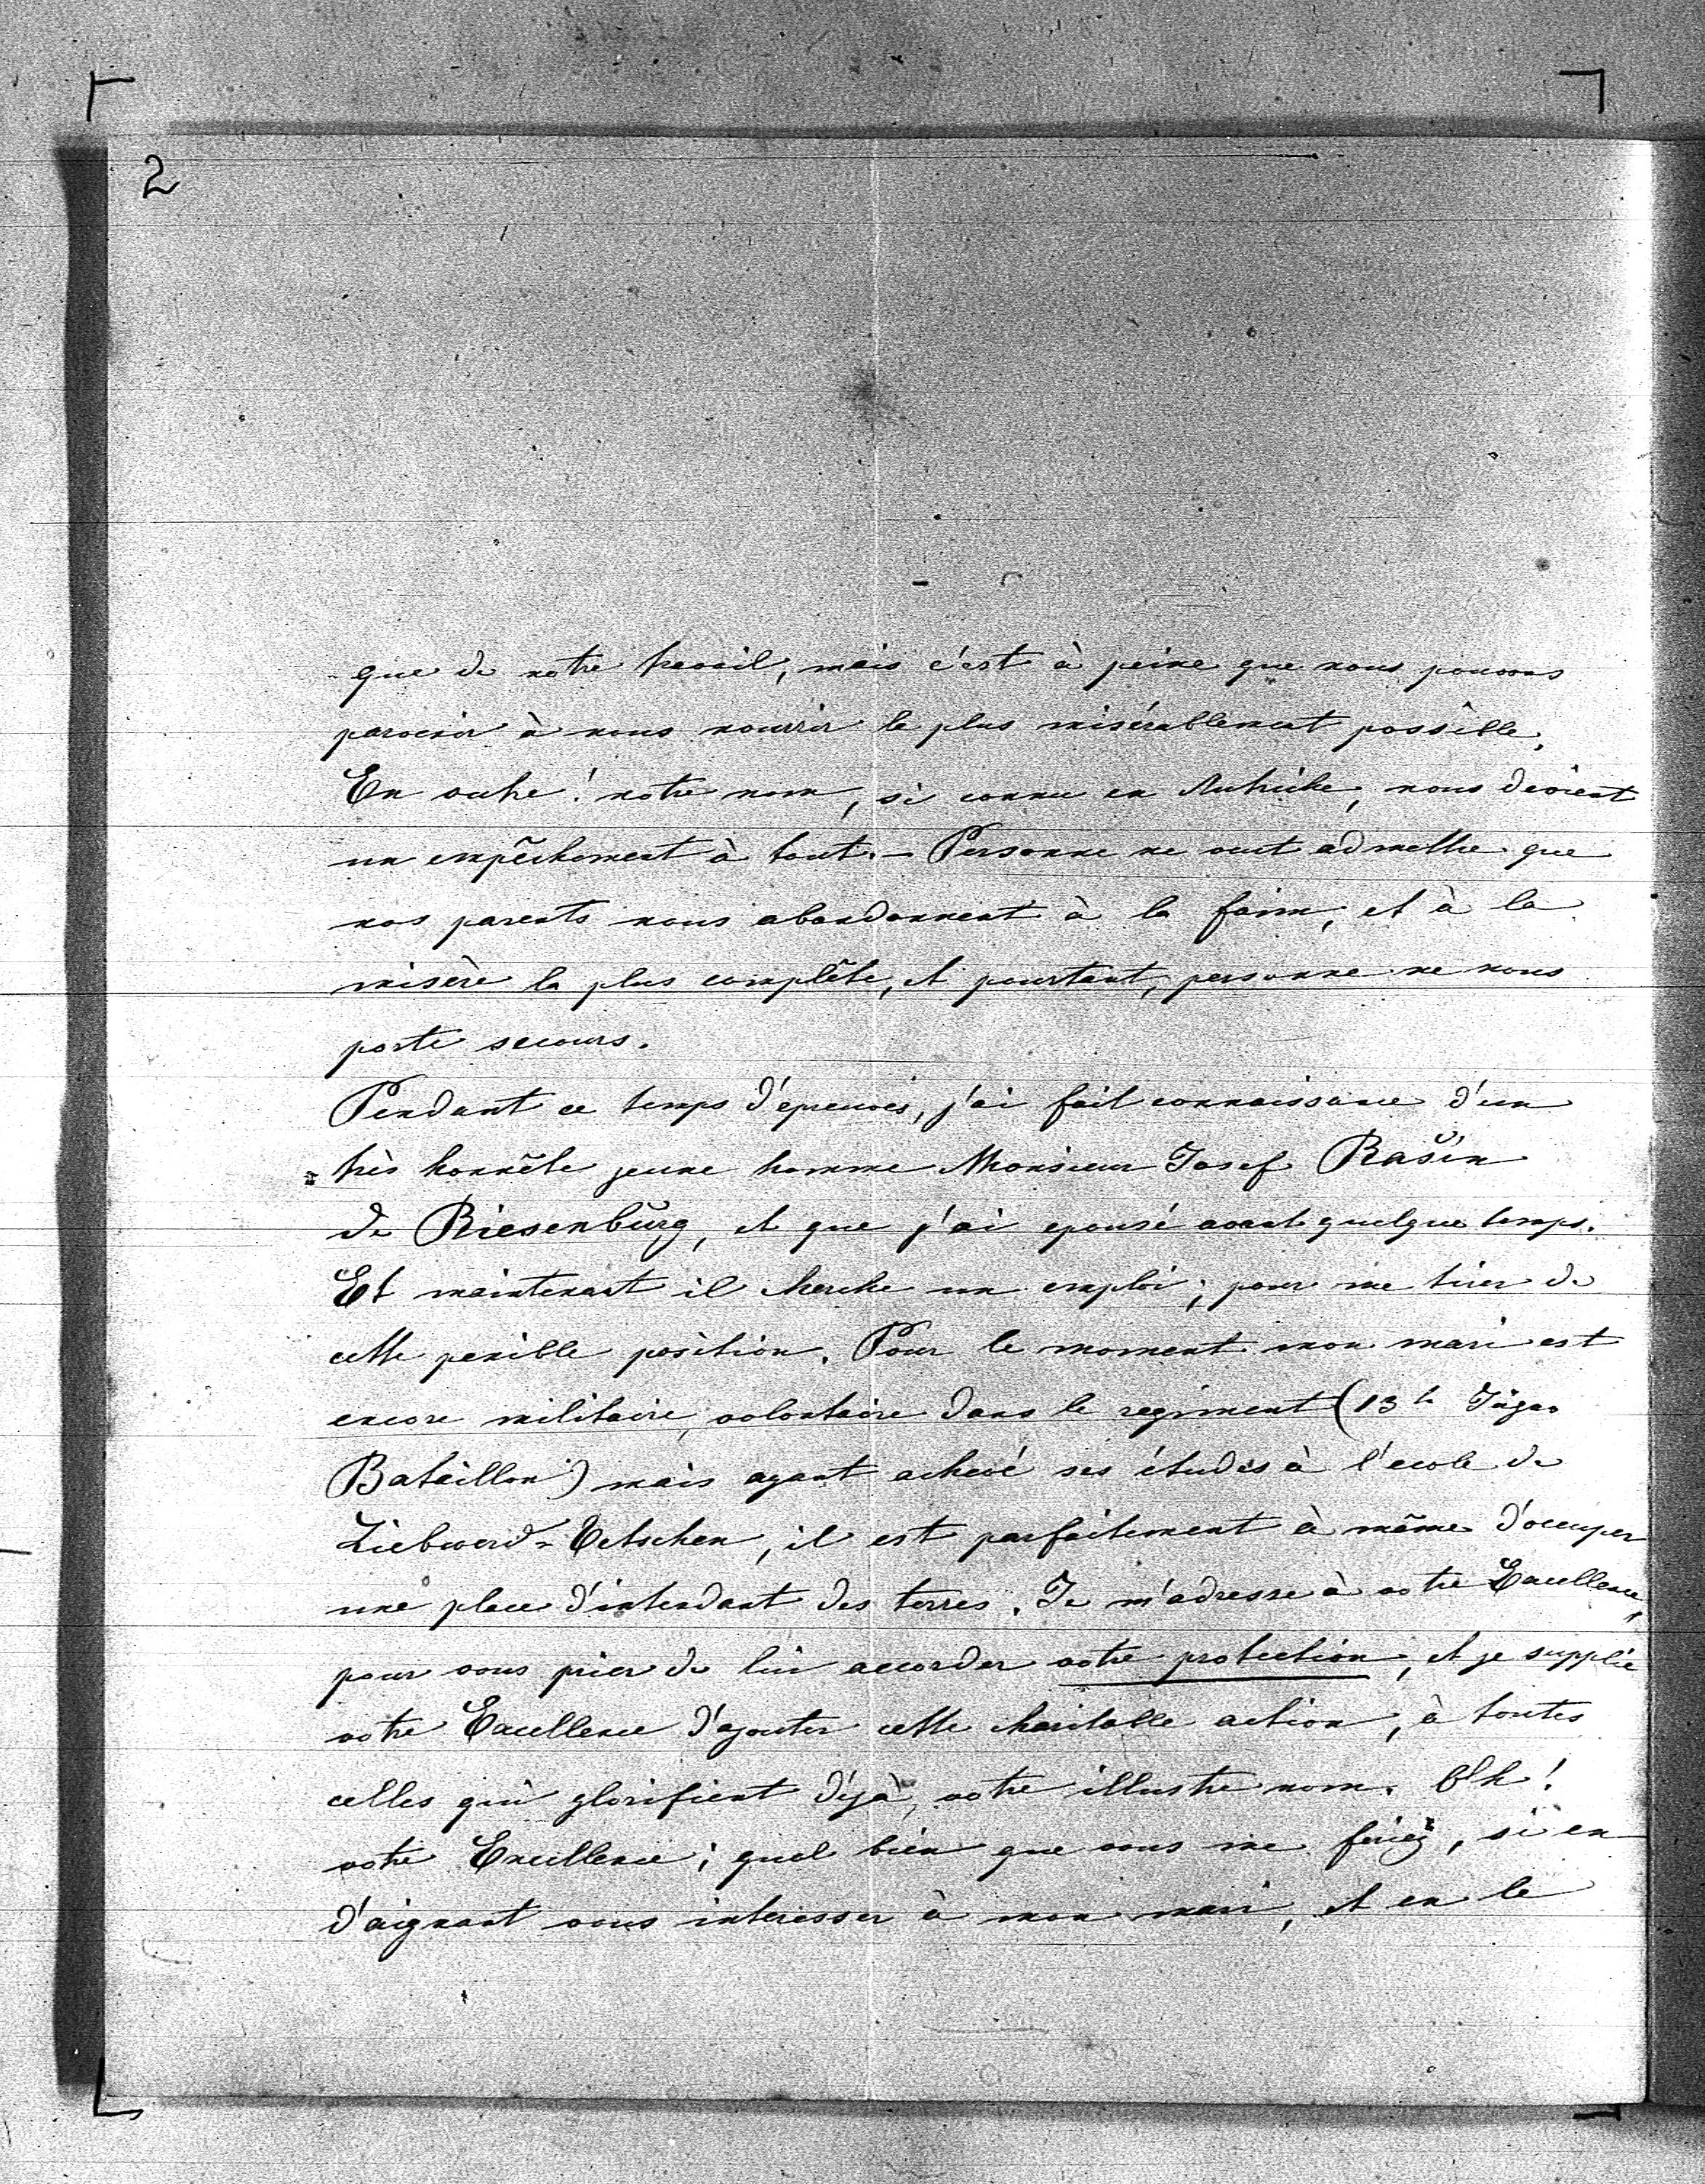 2
que de notre travail, mais c'est à peine que nous pouvons
parvenir à nous nourrir le plus misérablement possible.
En outre! notre nom, si connu en Autriche, nous devient
un empêchement à tout. — Personne ne veut admettre que
nos parents nous abandonnent à la faim, et à la
misère la plus complête, et pourtant, personne ne nous
porte secours.
Pendant ce temps d'épreuves, j'ai fait connaissance d'un
très honnête jeune homme Monsieur Josef Rašín
de Riesenburg, et que j'ai epousé avant quelque temps.
Et maintenant il cherche un emploi, pour me tirer de
cette penible position. Pour le moment mon mari est
encore militaire, volontaire dans le regiment (13t Jäger
Bataillon) mais ayant achevé ses études à l'ecole de
Liebwerd-Tetschen, il est parfaitement à même d'occuper
une place d'intendant des terres. Je m'adresse à votre Excellence,
pour vous prier de lui accorder votre protection, et je supplie
votre Excellence d'ajouter cette charitable action, à toutes
celles qui glorifient déjà, votre illustre nom. Oh!
votre Excellence; quel bien que vous me feriez, si en
d'aignant vous interesser à mon mari, et en le